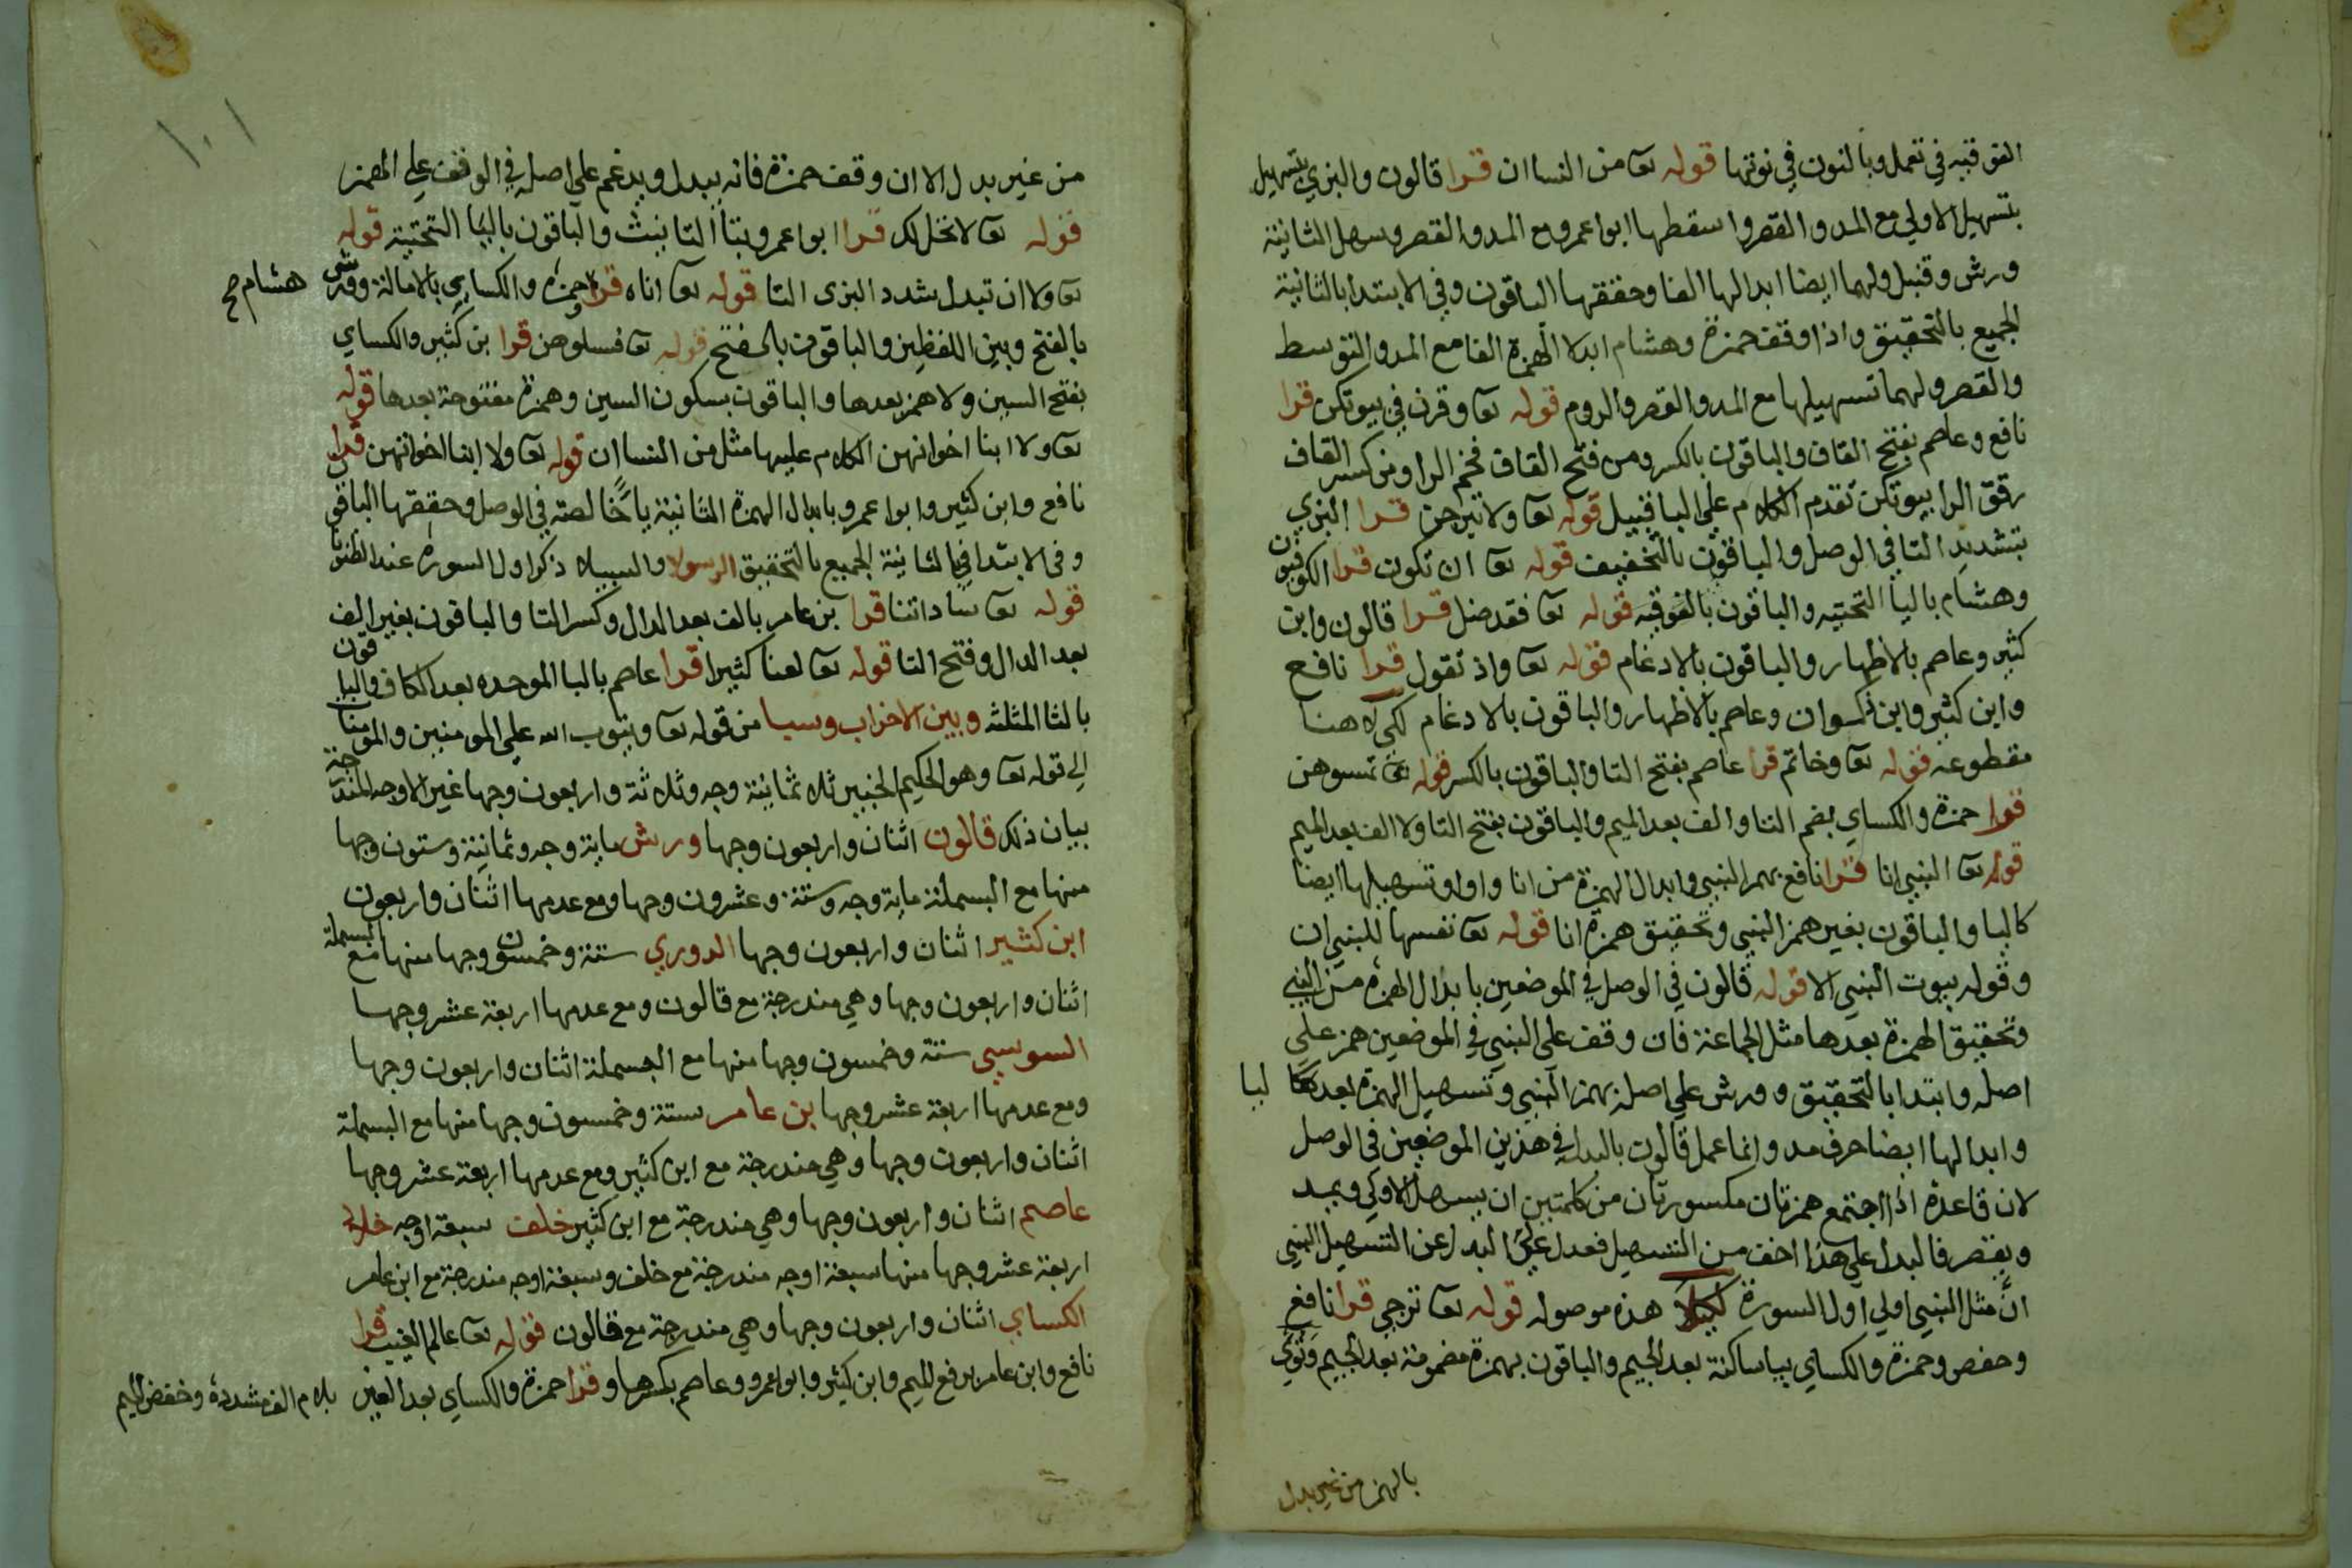 الفوقيه في تعمل وبالنون في نوتها قوله تعا من النسا ان قرا قالون والبزي بتسهيل
بتسهيل الاولي مع المد والقصر واسقطها ابو اعمرو مع المد والقصر وسهل الثانية
ورش وقنبل ولهما ايضا ابدالها الفا وحققها الباقون وفي الابتدا بالثانية
الجميع بالتحقيق واذا وقف حمزة وهشام ابدلا الهمزة الفا مع المد والتوسط
والقصر ولهما تسهيلها مع المد والقصر والروم قوله تعا وقرن في بيوتكن قرا
نافع وعاصم بفتح القاف والباقون بالكسر ومن فتح القاف فخم الرا ومن كسر القاف
رقق الرا بيوتكن تقدم الكلام علي البا قبيل قوله تعا ولا تبرجن قرا البزي
بتشديد التا في الوصل والباقون بالتخفيف قوله تعا ان تكون قرا الكوفيون
وهشام باليا التحتيه والباقون بالفوقيه قوله تعا فقد ضل قرا قالون وابن
كثير وعاصم بالاظهار والباقون بالادغام قوله تعا واذ تقول قرا نافع
وابن كثير وابن ذكوان وعاصم بالاظهار والباقون بالادغام لكي لا هنا
مقطوعه قوله تعا وخاتم قرا عاصم بفتح التا والباقون بالكسر قوله تعا تمسوهن
قرا حمزة والكساي بضم التا والف بعد الميم والباقون بفتح التا ولا الف بعد الميم
قوله تعا النبي انا قرا نافع بهمز النبي وابدال الهمزة من انا واوا وتسهيلها ايضا
كاليا والباقون بغير همز النبي وتحقيق همزة انا قوله تعا نفسها للنبي ان
وقوله بيوت النبي الا قوله قالون في الوصل في الموضعين بابدال الهمزة من النبي
وتحقيق الهمزة بعدها مثل الجماعة فان وقف علي النبي في الموضعين همز علي
اصله وابتدا بالتحقيق وورش علي اصله بهمز النبي وتسهيل الهمزة بعدها كاليا
وابدالها ايضا حرف مد وانما عمل قالون بالبدل في هذين الموضعين في الوصل
لان قاعدة اذا اجتمع همزتان مكسورتان من كلمتين ان يسهل الاوكي ويمد
ويقصر فالبدل علي هذا اخف من التسهيل فعدل علي البدل عن التسهيل النبي
ان مثل النبي اولي اول السورة لكيلا هذه موصوله قوله تعا ترجي قرا نافع
وحفص وحمزة والكساي بيا ساكنة بعد الجيم والباقون بهمزة مضمومة بعد الجيم وتوي
بالهمز من غير بدل
١٠١
من غير بدل الا ان وقف حمزة فانه يبدل ويدغم علي اصله في الوقف علي الهمز
قوله تعا لا تحل لك قرا ابوا عمرو بتا التانيث والباقون باليا التحتية قوله
تعا ولا ان تبدل شدد البزي التا قوله تعا اناه قرا حمزة والكساي بالامالة وورش هشام صح
بالفتح وبين اللفظين والباقون بالفتح قوله تعا فسلوهن قرا بن كثير والكساي
بفتح السين ولا همز بعدها والباقون بسكون السين وهمزة مفتوحة بعدها قوله
تعا ولا ابنا اخوانهن الكلام عليها مثل من النسا ان قوله تعا ولا ابنا اخواتهن قرا
نافع وابن كثير وابوا عمرو بابدال الهمزة الثانية يا خالصة في الوصل وحققها الباقون
وفي الابتدا في الثانية الجميع بالتحقيق الرسولا والسبيلا ذكر اول السورة عند الظنونا
قوله تعا ساداتنا قرا بن عامر بالف بعد الدال وكسر التا والباقون بغير الف
بعد الدال وفتح التا قوله تعا لعنا كثيرا قرا عاصم بالبا الموحده بعد الكاف والباقون
بالثا المثلثه وبين الاحزاب وسبا من قوله تعا ويتوب الله علي المومنين والمومنات
الي قوله تعا وهو الحكيم الخبير ثلاثمائة وجه وثلاثة واربعون وجها غير الاوجه المندرجة
بيان ذلك قالون اثنان واربعون وجها ورش ماية وجه وثمانية وستون وجها
منها مع البسملة ماية وجه وستة وعشرون وجها ومع عدمها اثنان واربعون
ابن كثير اثنان واربعون وجها الدوري ستة وخمسون وجها منها مع البسملة
اثنان واربعون وجها وهي مندرجة مع قالون ومع عدمها اربعة عشر وجها
السوسي ستة وخمسون وجها منها مع البسملة اثنان واربعون وجها
ومع عدمها اربعة عشر وجها بن عامر ستة وخمسون وجها منها مع البسملة
اثنان واربعون وجها وهي مندرجة مع ابن كثير ومع عدمها اربعة عشر وجها
عاصم اثنان واربعون وجها وهي مندرجة مع ابن كثير خلف سبعة اوجه خلاد
اربعة عشر وجها منها سبعة اوجه مندرجة مع خلف وسبعة اوجه مندرجة مع ابن عامر
الكساي اثنان واربعون وجها وهي مندرجة مع قالون قوله تعا عالم الغيب قرا
نافع وابن عامر برفع الميم وابن كثير وابوا عمرو وعاصم بكسرها وقرا حمزة والكساي بعد العين بلام الف مشددة وخفض الميم